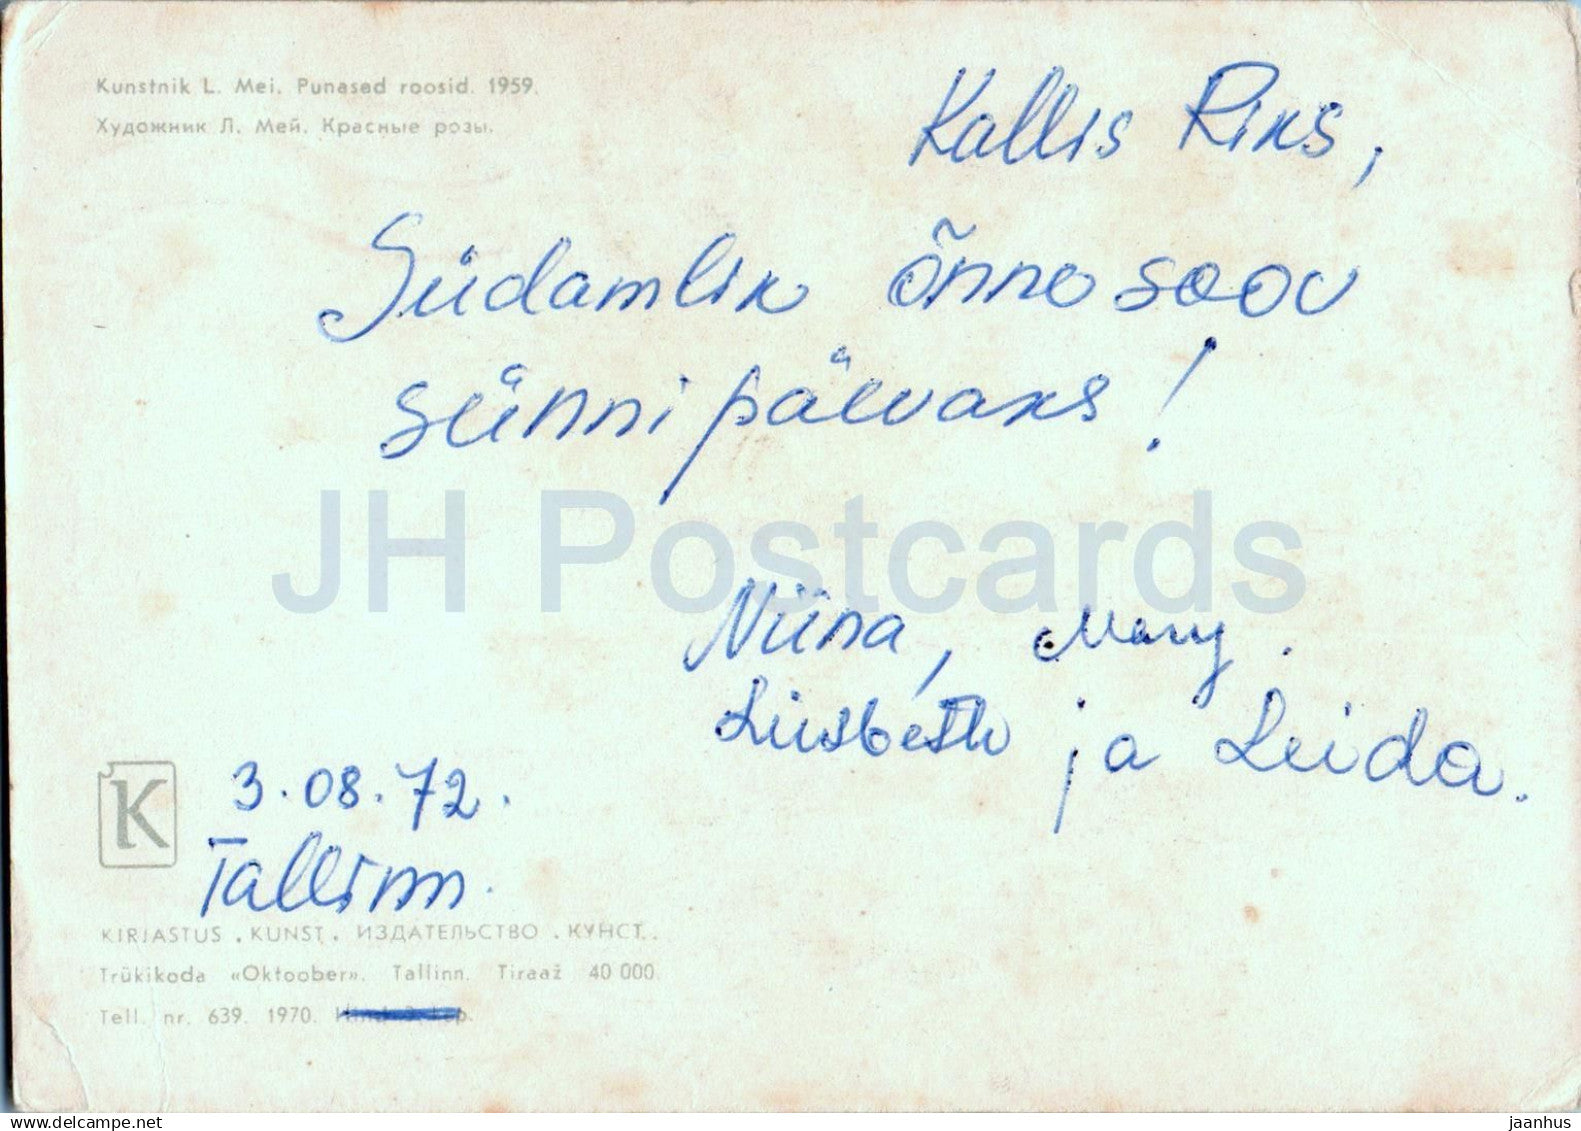 Kunstnik L. Mei. Punased roosid. 1959.
Художник Л. Мей. Красные розы.
Kallis Riks,
Südamlik õnnesoov
sünnipäevaks!
JH Postcards
Niina, Mary.
Liisbeth ja Leida.
K
3.08.72.
Tallinn.
KIRJASTUS . KUNST . ИЗДАТЕЛЬСТВО . КУНСТ.
Trükikoda «Oktoober». Tallinn. Tiraaž 40 000.
Tell. nr. 639. 1970.
sudw.delcampe.net
jaanhus